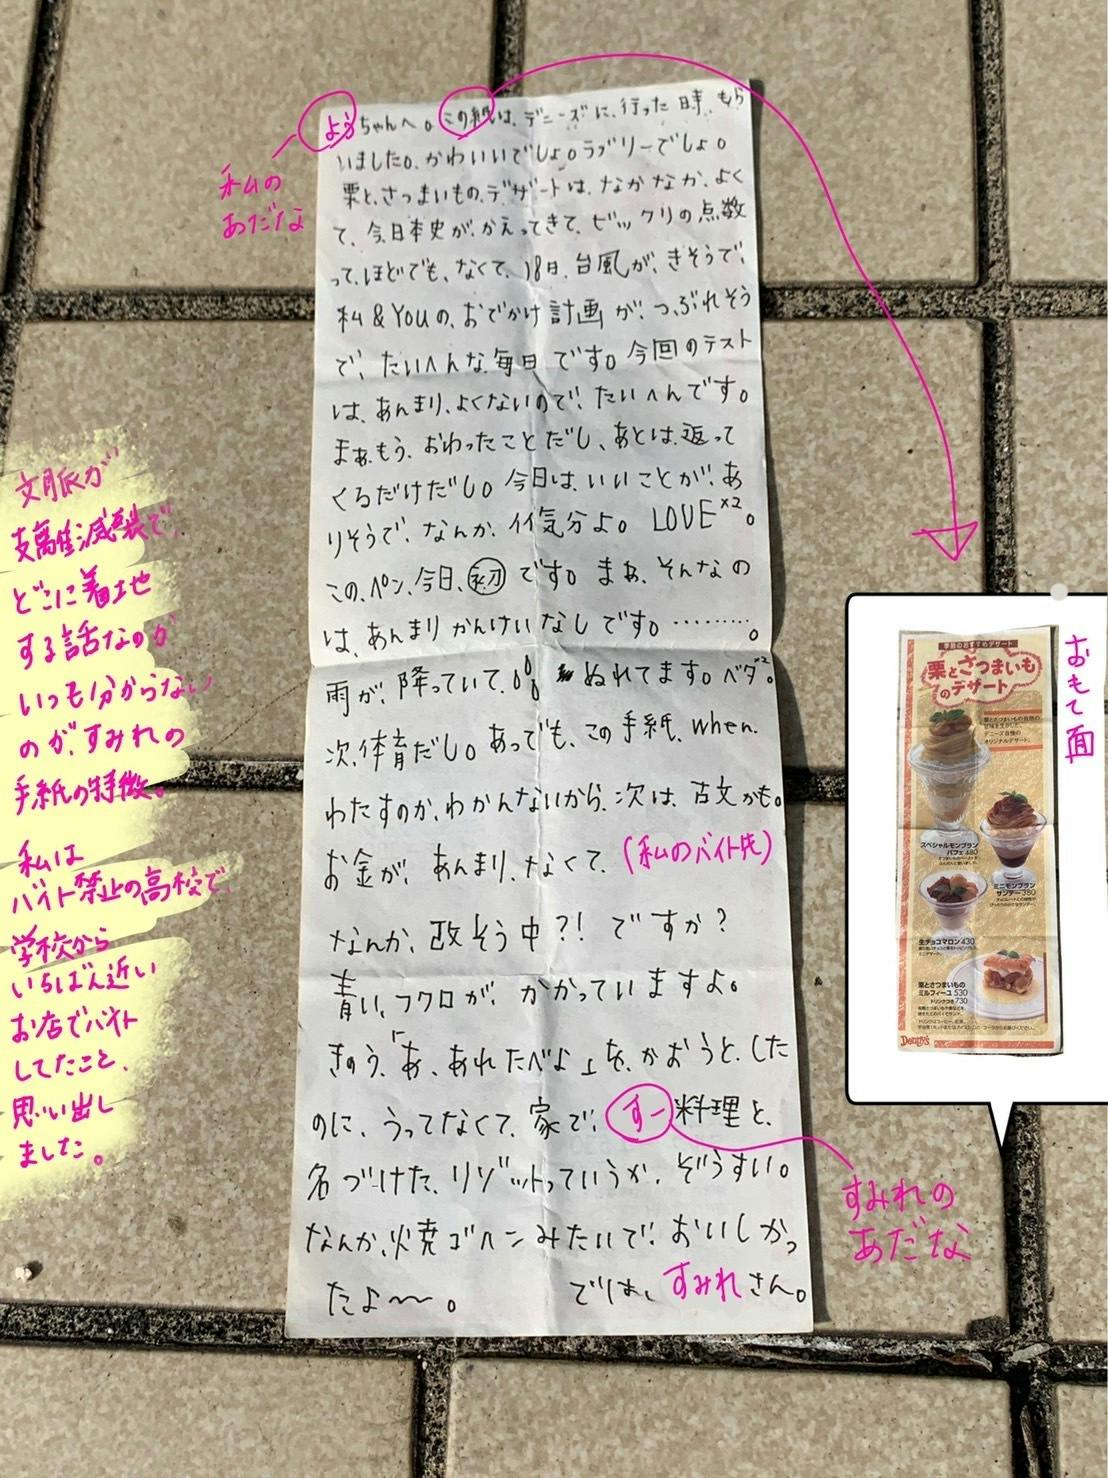 ようちゃんへ。この紙は、デニーズに、行った時、もら
いました。かわいいでしょ。ラブリーでしょ。
栗と、さつまいもの、デザートは、なかなか、よく
て、今、日本史が、かえってきて、ビックリの点数
って、ほどでも、なくて、18日、台風が、きそうで、
私&YOUの、おでかけ計画が、つぶれそう
で、たいへんな、毎日です。今回のテスト
は、あんまり、よくないので、たいへんです。
まぁ、もう、おわったことだし、あとは、返って
くるだけだし。今日は、いいことが、あ
りそうで、なんか、イイ気分よ。LOVE×2。
この、ペン、今日、初です。まぁ、そんなの
は、あんまりかんけいなしです。………。
雨が、降っていて、ぬれてます。ベタ×2。
次、体育だし。あっでも、この手紙、when、
わたすのか、わかんないから、次は、古文かも。
お金が、あんまり、なくて、
(私のバイト先)
なんか、改そう中?!ですか?
青い、フクロが、かかっていますよ。
きのう、「あ、あれたべよ」を、かおうと、した
のに、うってなくて、家で、すー料理と、
名づけた、リゾットっていうか、ぞうすい。
なんか、火焼ゴハンみたいで、おいしかっ
たよ〜。 では、すみれさん。
私の
あだな
文脈が
支離滅裂で、
どこに着地
する話なのか
いつも分からない
のが、すみれの
手紙の特徴。
私は
バイト禁止の高校で、
学校から
いちばん近い
お店でバイト
してたこと、
思い出し
ました。
すみれの
あだな
おもて面
季節のおすすめデザート
栗とさつまいも
のデザート
栗とさつまいもの自然の
甘味を生かした、
デニーズ自慢の
オリジナルデザート。
スペシャルモンブラン
パフェ480
ミニモンブラン
サンデー380
生チョコマロン430
栗とさつまいもの
ミルフィーユ530
ドリンクつき730
Denny's